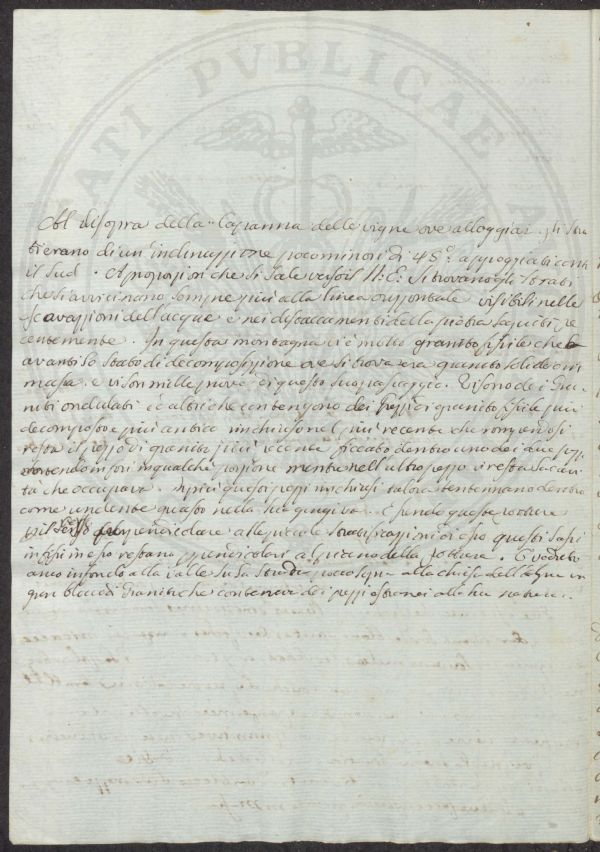 ATI PVBLICAE
Al disopra della Capanna delle vigne ove alloggiai gli Stra
ti erano di un inclinazione poco minore di 45° appoggiati contro
il Sud. A proporzion che si sale verso il N.E. si trovano gli Strati
che si avvicinano sempre più alla linea orizontale visibili nelle
scavazzioni dell'acque e nei distaccamenti della pietra seguiti re
centemente. In questa montagna vi è molto granito fissile che
avanti lo stato di decomposizione ove si trova era granito solido o in
massa e vi son mille prove di questo suo passaggio. Vi sono de i Gra
niti ondulati e altri che contengono dei pezzi di granito fissile più
decomposto e più antico inchiuso nel più recente che rompendosi
resta il pezzo di granito più recente ficcato dentro uno dei due pezzi
in qualche porzione mentre nell'altro pezzo vi resta la cavi
tà che occupava. Spesso questi pezzi inchiusi talora tentennano dentro
come un dente quasi nella sua gengiva. Essendo queste rotture
perpendicolare alle piccole stratificazioni di esso questi sassi
infissi in esso restano perpendicolari al piano della rottura. Vedrete
anco in fondo alla Valle su la Strada poco sopra alla chiusa dell'acqua un
gran blocco di Granito che conteneva dei pezzi estranei alla sua natura.